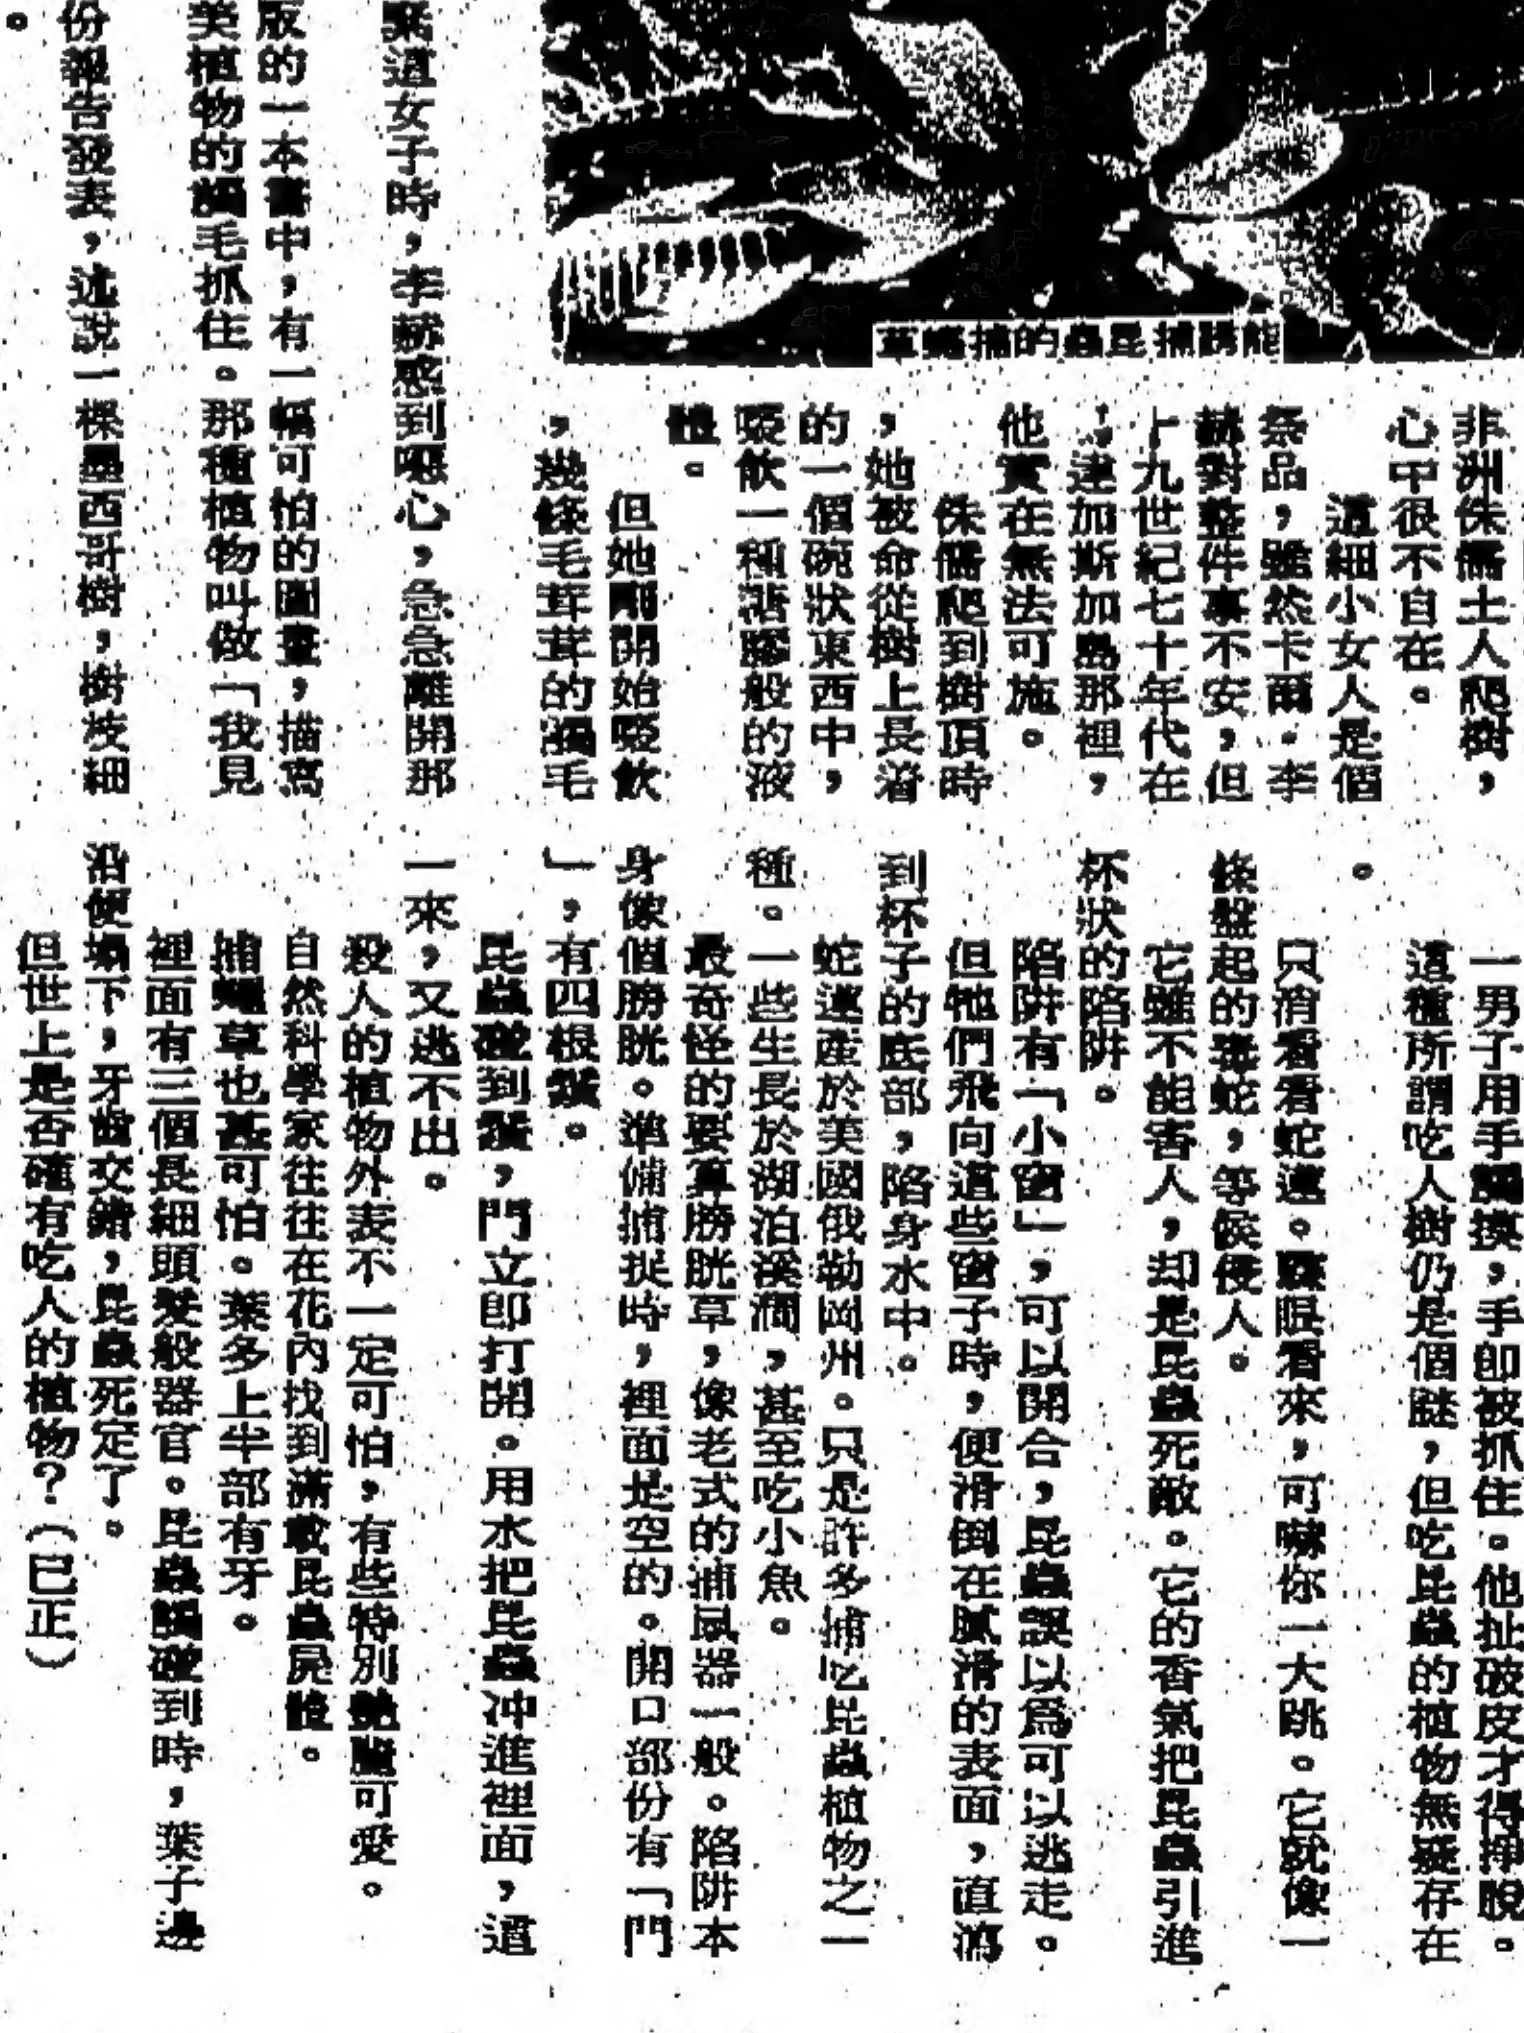 能誘捕昆蟲的捕蠅草
非洲侏儒土人爬樹，
心中很不自在。
這細小女人是個
祭品，雖然卡爾．李
赫對整件事不安，但
十九世紀七十年代在
，達加斯加島那裡，
他實在無法可施。
侏儒爬到樹頂時
，她被命從樹上長着
的一個碗狀東西中，
啜飲一種諸膠般的液
體。
但她剛開始啜飲
，幾條毛茸茸的觸毛
葉這女子時，李赫感到噁心，急急離開那
版的一本書中，有一幅可怕的圖畫，描寫
美植物的觸毛抓住。那種植物叫做「我見
份報告發表，述說一棵墨西哥樹，樹枝細
。
一男子用手觸摸，手即被抓住。他扯破皮才得掙脫。
這種所謂吃人樹仍是個謎，但吃昆蟲的植物無疑存在
。
只消看看蛇蓮。驟眼看來，可嚇你一大跳。它就像一
條盤起的毒蛇，等候侵人。
它雖不能害人，却是昆蟲死敵。它的香氣把昆蟲引進
杯狀的陷阱。
陷阱有「小窗」，可以開合，昆蟲誤以爲可以逃走。
但牠們飛向這些窗子時，便滑倒在膩滑的表面，直瀉
到杯子的底部，陷身水中。
蛇蓮產於美國俄勒岡州。只是許多捕吃昆蟲植物之一
種。一些生長於湖泊溪澗，甚至吃小魚。
最奇怪的要算膀胱草，像老式的捕鼠器一般。陷阱本
身像個膀胱。準備捕捉時，裡面是空的。開口部份有「門
」，有四根鬚。
昆蟲碰到鬚，門立即打開。用水把昆蟲冲進裡面，這
一來，又逃不出。
殺人的植物外表不一定可怕，有些特別艷麗可愛。
自然科學家往往在花內找到滿載昆蟲屍體。
捕蠅草也甚可怕。葉多上半部有牙。
裡面有三個長細頭髮般器官。昆蟲觸碰到時，葉子邊
沿便塌下，牙齒交錯，昆蟲死定了。
但世上是否確有吃人的植物？（已正）